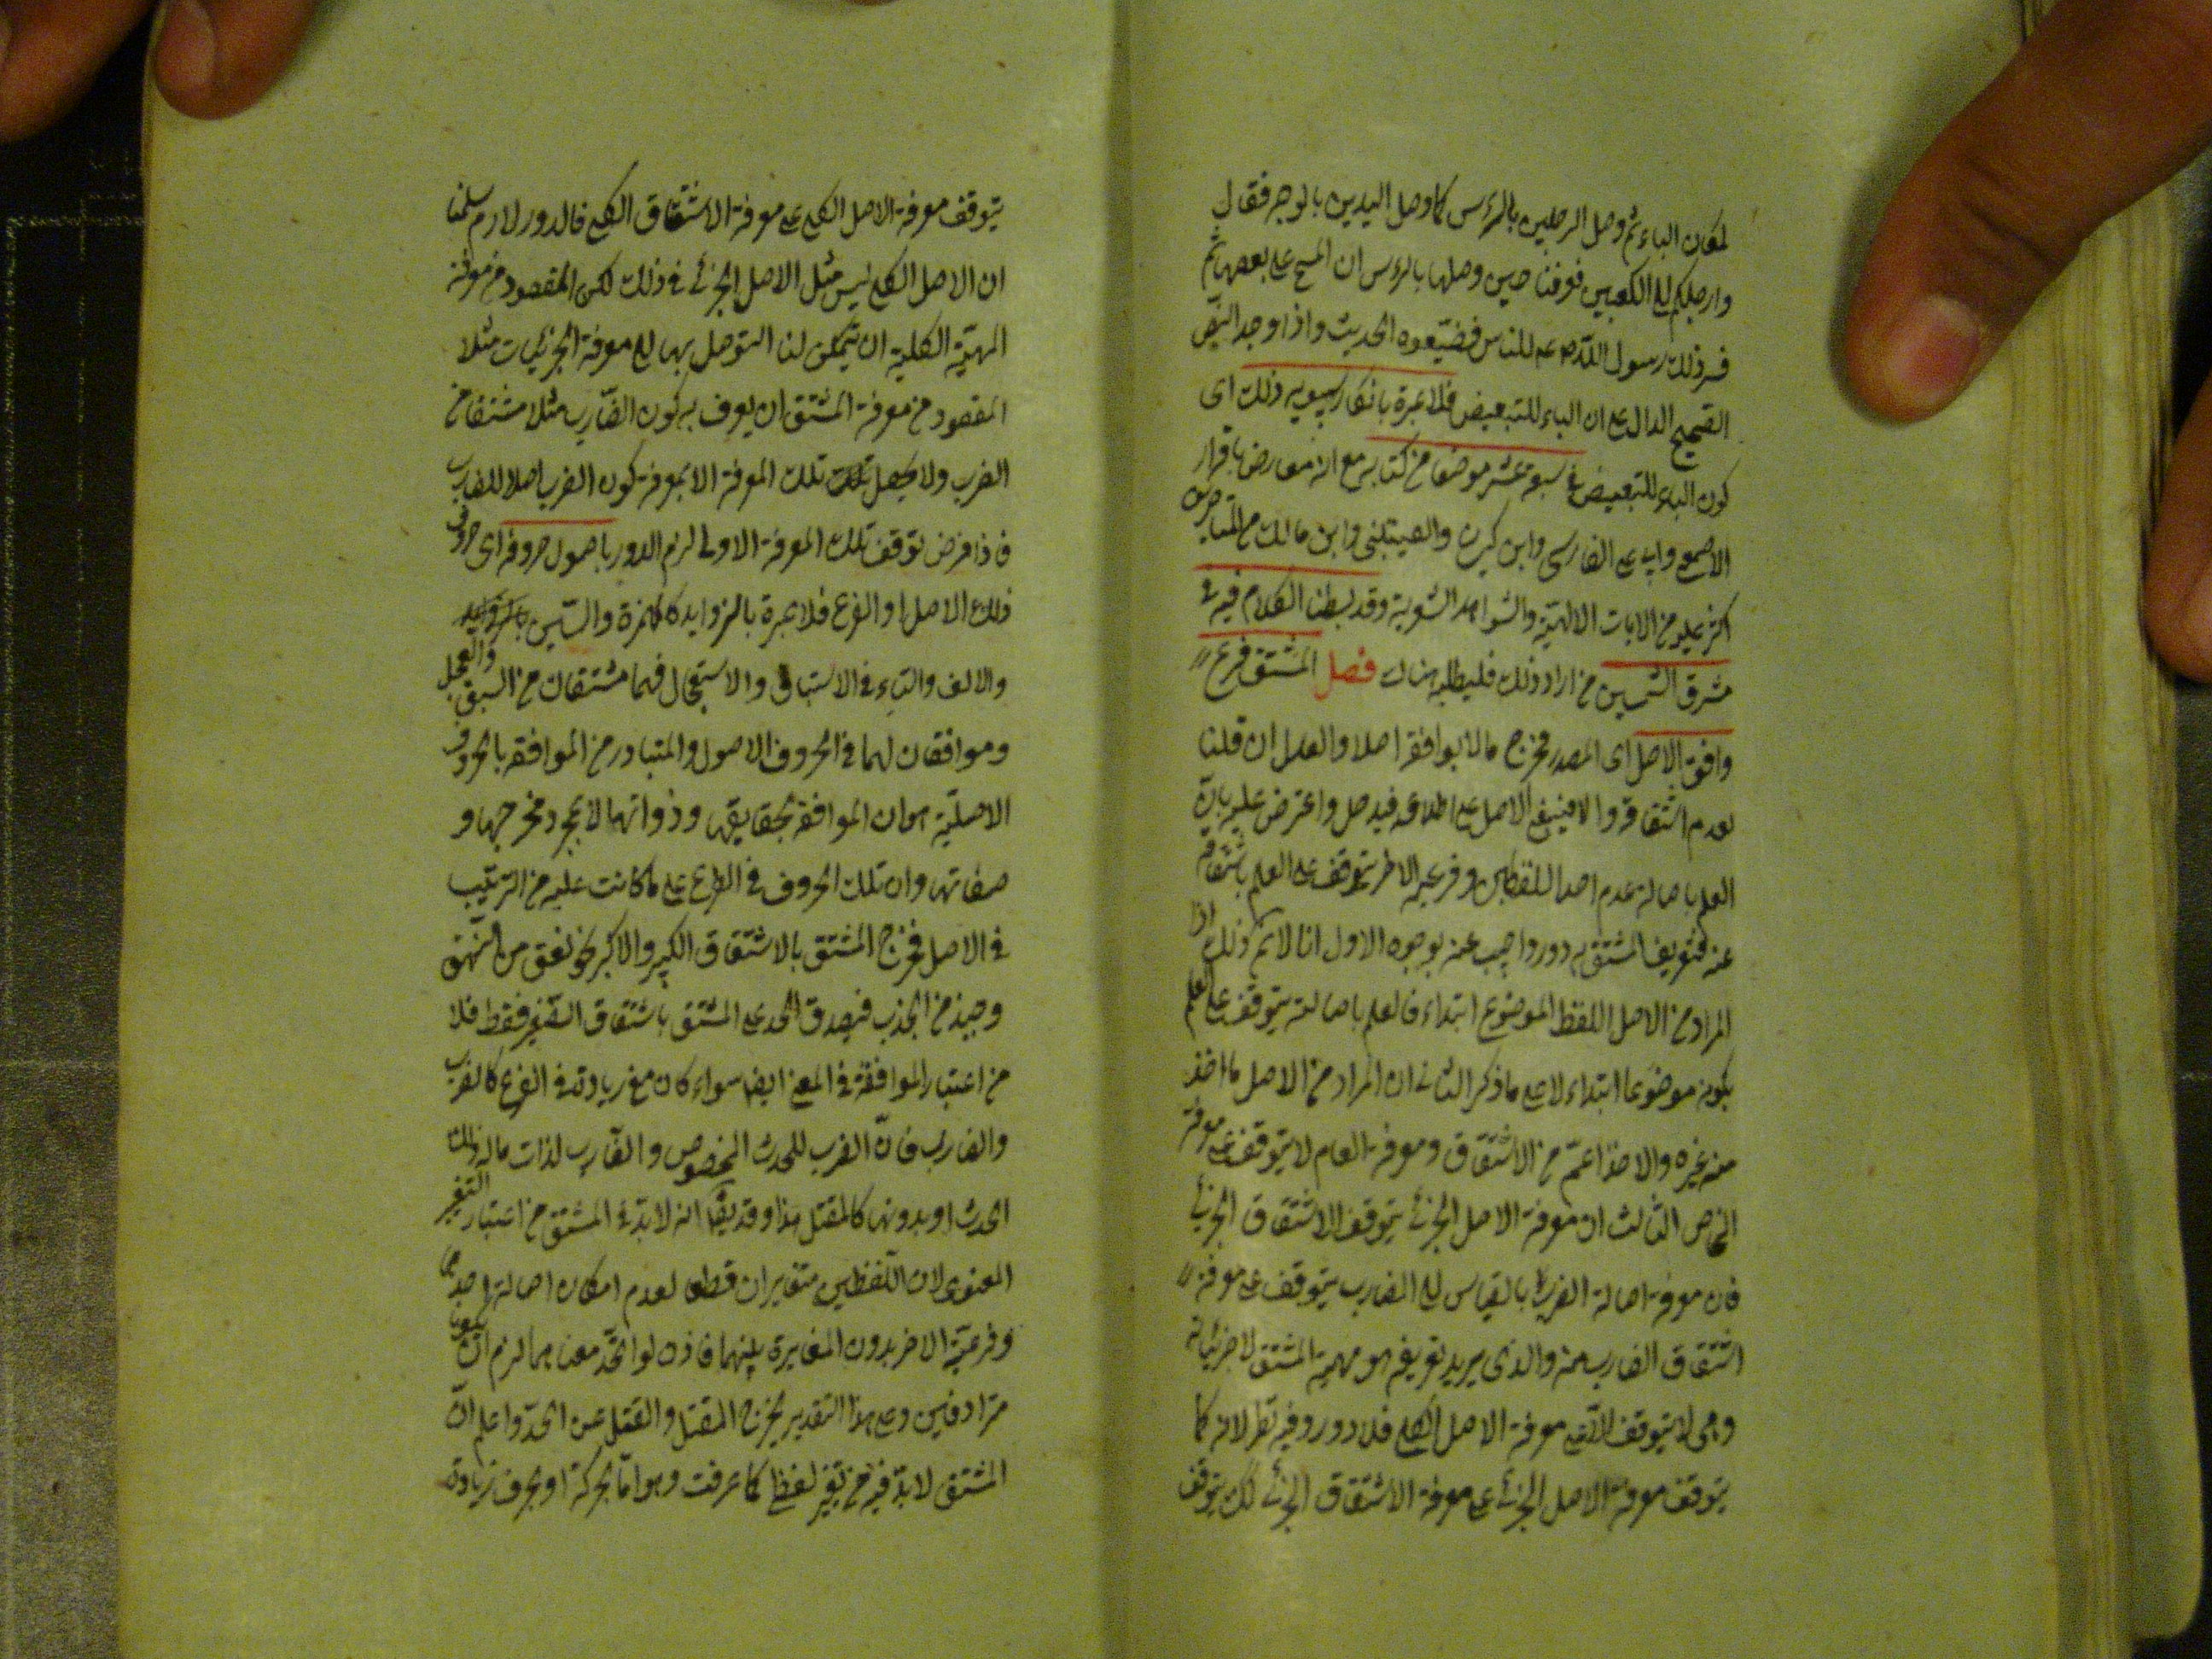 لمكان الباء ثم وصل الرجلين بالرؤس كما وصل اليدين بالوجه فقال
وارجلكم الى الكعبين فعرفنا حين وصلها بالرؤس ان المسح على بعضها ثم
فسر ذلك رسول الله ص للناس فضيعوه الحديث واذا وجد النص
الصحيح الدال على ان الباء للتبعيض فلا عبرة بانكار سيبويه ذلك اى
كون الباء للتبعيض في سبعة عشر موضعا من كتابه مع انه معارض باقرار
الاصمعى وابى على الفارسى وابن كيسان والقيتبى وابن مالك من المتاخرين
اكثر عليه من الايات الالهية والشواهد الشعرية وقد بسطنا الكلام فيه في
مشرق الشمسين من اراد ذلك فليطلبه هناك فصل المشتق فرع
وافق الاصل اى المصدر فخرج ما لا يوافقه اصلا والعدل ان قلنا
بعدم اشتقاقه والا فينبغي الاصل على اطلاقه فيدخل واعترض عليه بان
العلم باصالة عدم احد اللفظين وفرعية الاخر يتوقف على العلم باشتقاقه
عنه فتعريف المشتق به دور واجيب عنه بوجوه الاول انا لا نم ذلك اذا
المراد من الاصل اللفظ الموضوع ابتداء فالعلم باصالته يتوقف على العلم
بكونه موضوعا ابتداء لا على ما ذكر الثانى ان المراد من الاصل ما اخذ
منه غيره والاخذ اعم من الاشتقاق ومعرفة العام لا يتوقف على معرفة
الخاص الثالث ان معرفة الاصل الجزئى يتوقف الاشتقاق الجزئى
فان معرفة اصالة الضرب بالقياس الى الضارب يتوقف على معرفة
اشتقاق الضارب منه والذى يريد تعريفه هو مهية المشتق لا جزئياته
وهى لا يتوقف الا على معرفة الاصل الكلى فلا دور وفيه نظر لانه كما
يتوقف معرفة الاصل الجزئى على معرفة الاشتقاق الجزئى كك يتوقف
يتوقف معرفة الاصل الكلى على معرفة الاشتقاق الكلى فالدور لازم سلمنا
ان الاصل الكلى ليس مثل الاصل الجزئى في ذلك لكن المقصود من معرفة
المهية الكلية ان يتمكن لنا التوصل بها الى معرفة الجزئيات مثلا
المقصود من معرفة المشتق ان يعرف به كون الضارب مثلا مشتقا من
الضرب ولا يحصل تلك تلك المعرفة الا بمعرفة كون الضرب اصلا للضارب
فاذا فرض توقف تلك المعرفة الاولى لزم الدور باصول حروفه اى حروف
ذلك الاصل او الفرع فلا عبرة بالزوايد كالهمزة والسين
والالف والتاء في الاستباق والاستعجال فهما مشتقان من السبق والعجل
وموافقان لهما في الحروف الاصول والمتبادر من الموافقة بالحروف
الاصلية هو ان الموافقة بحقايقها وذواتها لا بمجرد مخرجها و
صفاتها وان تلك الحروف في الفرع على ما كانت عليه من الترتيب
في الاصل فخرج المشتق بالاشتقاق الكبير والاكبر نحو نعق من النهق
وجبذ من الجذب فيصدق الحد على المشتق باشتقاق الصغير فقط فلا
من اعتبار الموافقة في المعنى ايضا سواء كان مع زيادته في الفرع كالضرب
والضارب فان الضرب للحدث المخصوص والضارب لذات ما له ذلك
الحدث او بدونها كالمقتل هذا وقد يقال انه لا بد في المشتق من اعتبار التغير
المعنوى لان اللفظين متغايران قطعا لعدم امكان اصالة احدهما
وفرعية الاخر بدون المغايرة بينهما فاذن لو اتحد معناهما لزم ان يكونا
مترادفين وعلى هذا التقدير يخرج المقتل والقتل عن الحد واعلم ان
المشتق لا بد فيه من تغير لفظا كما عرفت وهو اما بحركة او بحرف زيادة